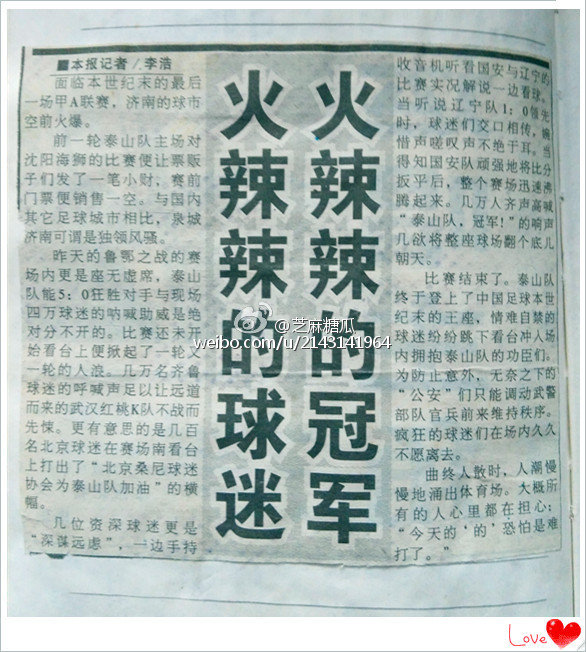 ■本报记者/李浩
面临本世纪末的最后
一场甲A联赛，济南的球市
空前火爆。
前一轮泰山队主场对
沈阳海狮的比赛便让票贩
子们发了一笔小财，赛前
门票便销售一空。与国内
其它足球城市相比，泉城
济南可谓是独领风骚。
昨天的鲁鄂之战的赛
场内更是座无虚席，泰山
队能5：0狂胜对手与现场
四万球迷的呐喊助威是绝
对分不开的。比赛还未开
始看台上便掀起了一轮又
一轮的人浪。几万名齐鲁
球迷的呼喊声足以让远道
而来的武汉红桃K队不战而
先悚。更有意思的是几百
名北京球迷在赛场南看台
上打出了“北京桑尼球迷
协会为泰山队加油”的横
幅。
几位资深球迷更是
“深谋远虑”，一边手持
火辣辣的冠军
火辣辣的球迷
收音机听看国安与辽宁的
比赛实况解说一边看球。
当听说辽宁队1：0领先
时，球迷们交口相传，惋
惜声嗟叹声不绝于耳。当
得知国安队顽强地将比分
扳平后，整个赛场迅速沸
腾起来。几万人齐声高喊
“泰山队，冠军！”的响声
几欲将整座球场翻个底儿
朝天。
比赛结束了。泰山队
终于登上了中国足球本世
纪末的王座，情难自禁的
球迷纷纷跳下看台冲入场
内拥抱泰山队的功臣们。
为防止意外，无奈之下的
“公安”们只能调动武警
部队官兵前来维持秩序。
疯狂的球迷们在场内久久
不愿离去。
曲终人散时，人潮慢
慢地涌出体育场。大概所
有的人心里都在担心：
“今天的‘的’恐怕是难
打了。”
@芝麻糖瓜
weibo.com/u/2143141964
Love